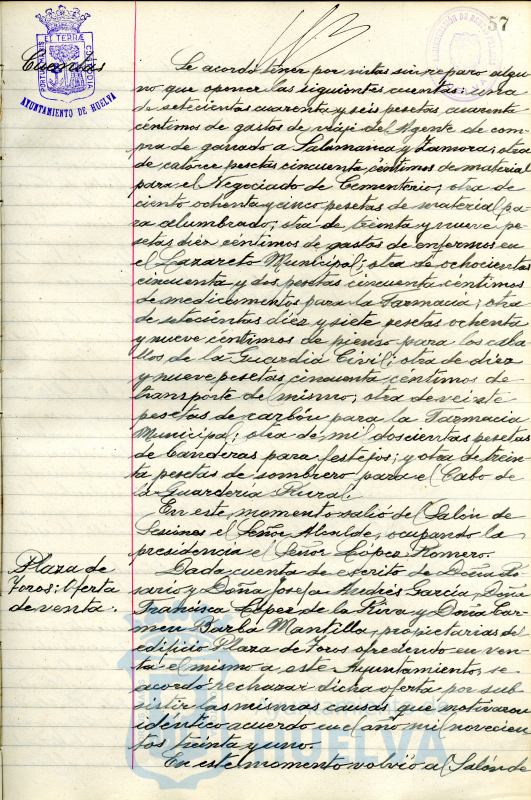 57
AYUNTAMIENTO DE HUELVA
Cuentas
Se acordó tener por vistas sin reparo algu-
no que oponer las siguientes cuentas: una
de setecientas cuarenta y seis pesetas cuarenta
céntimos de gastos de viaje del Agente de com-
pra de ganado a Salamanca y Zamora; otra
de catorce pesetas cincuenta céntimos de material
para el Negociado de Cementerio; otra de
ciento ochenta y cinco pesetas de material pa-
ra alumbrado; otra de treinta y nueve pe-
setas diez céntimos de gastos de enfermos en
el Lazareto Municipal; otra de ochocientas
cincuenta y dos pesetas cincuenta céntimos
de medicamentos para la Farmacia; otra
de setecientas diez y siete pesetas ochenta
y nueve céntimos de pienso para los caba-
llos de la Guardia Civil; otra de diez
y nueve pesetas cincuenta céntimos de
transporte del mismo; otra de veinte
pesetas de carbón para la Farmacia
Municipal; otra de mil doscientas pesetas
de banderas para festejos; y otra de trein-
ta pesetas de sombrero para el Cabo de
la Guardería Rural.
En este momento salió del Salón de
Sesiones el Señor Alcalde, ocupando la
presidencia el Señor López Romero.
Plaza de
Toros: Oferta
de venta.
Dada cuenta de escrito de Doña Ro-
sario y Doña Josefa Andrés García, Doña
Francisca López de la Riva y Doña Car-
men Barba Mantilla, propietarias del
edificio Plaza de Toros ofreciendo en ven-
ta el mismo a este Ayuntamiento, se
acordó rechazar dicha oferta por sub-
sistir las mismas causas que motivaron
idéntico acuerdo en el año mil novecien-
tos treinta y uno.
En este momento volvió al Salón de
HUELVA